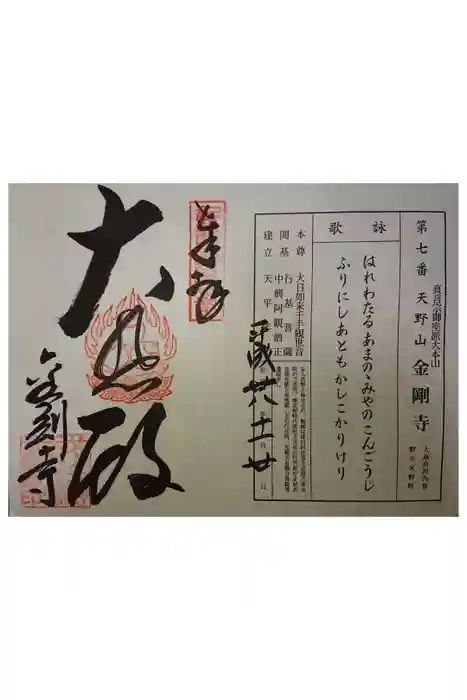 第七番 天野山 金剛寺
真言宗御室派大本山
大阪府河内長
野市天野町
詠歌
はれわたるあまのゝみやのこんごうじ
ふりにしあともかしこかりけり
本尊 大日如来千手観世音
開基 行基菩薩
中興阿観僧正
建立 天平
平成廿八 十一 廿
奉拝
大悲殿
金剛寺